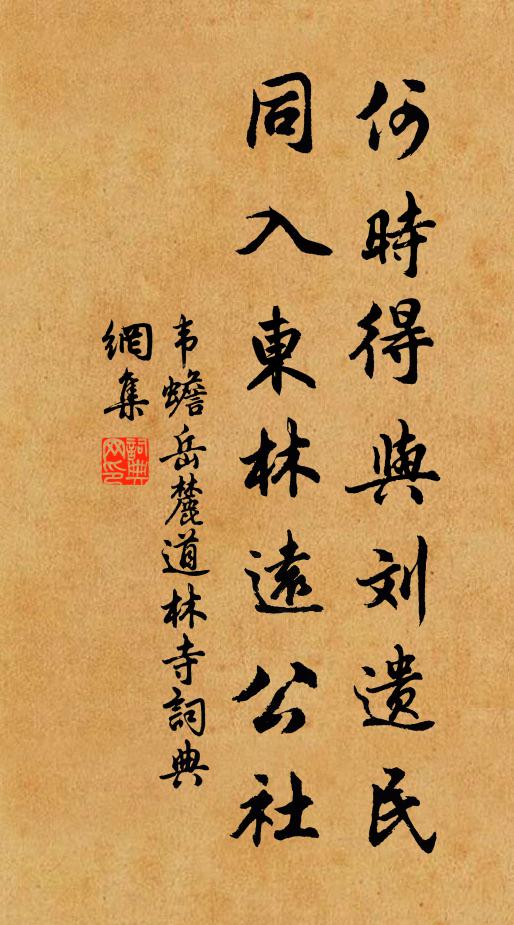 何時得與刘遗民
同入東林遠公社
韦蟾岳麓道林寺詞典
網集
詞典網印